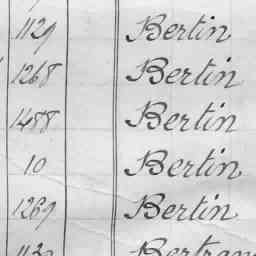 1129 Bertin
1268 Bertin
1488 Bertin
10 Bertin
1269 Bertin